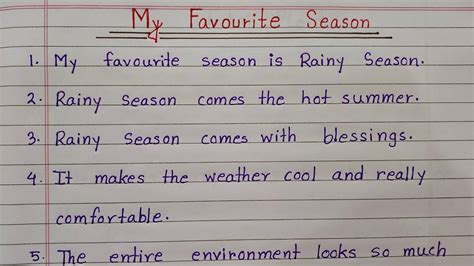 My Favourite Season
1. My favourite season is Rainy Season.
2. Rainy Season comes the hot summer.
3. Rainy Season comes with blessings.
4. It makes the weather cool and really
comfortable.
5. The entire environment looks so much